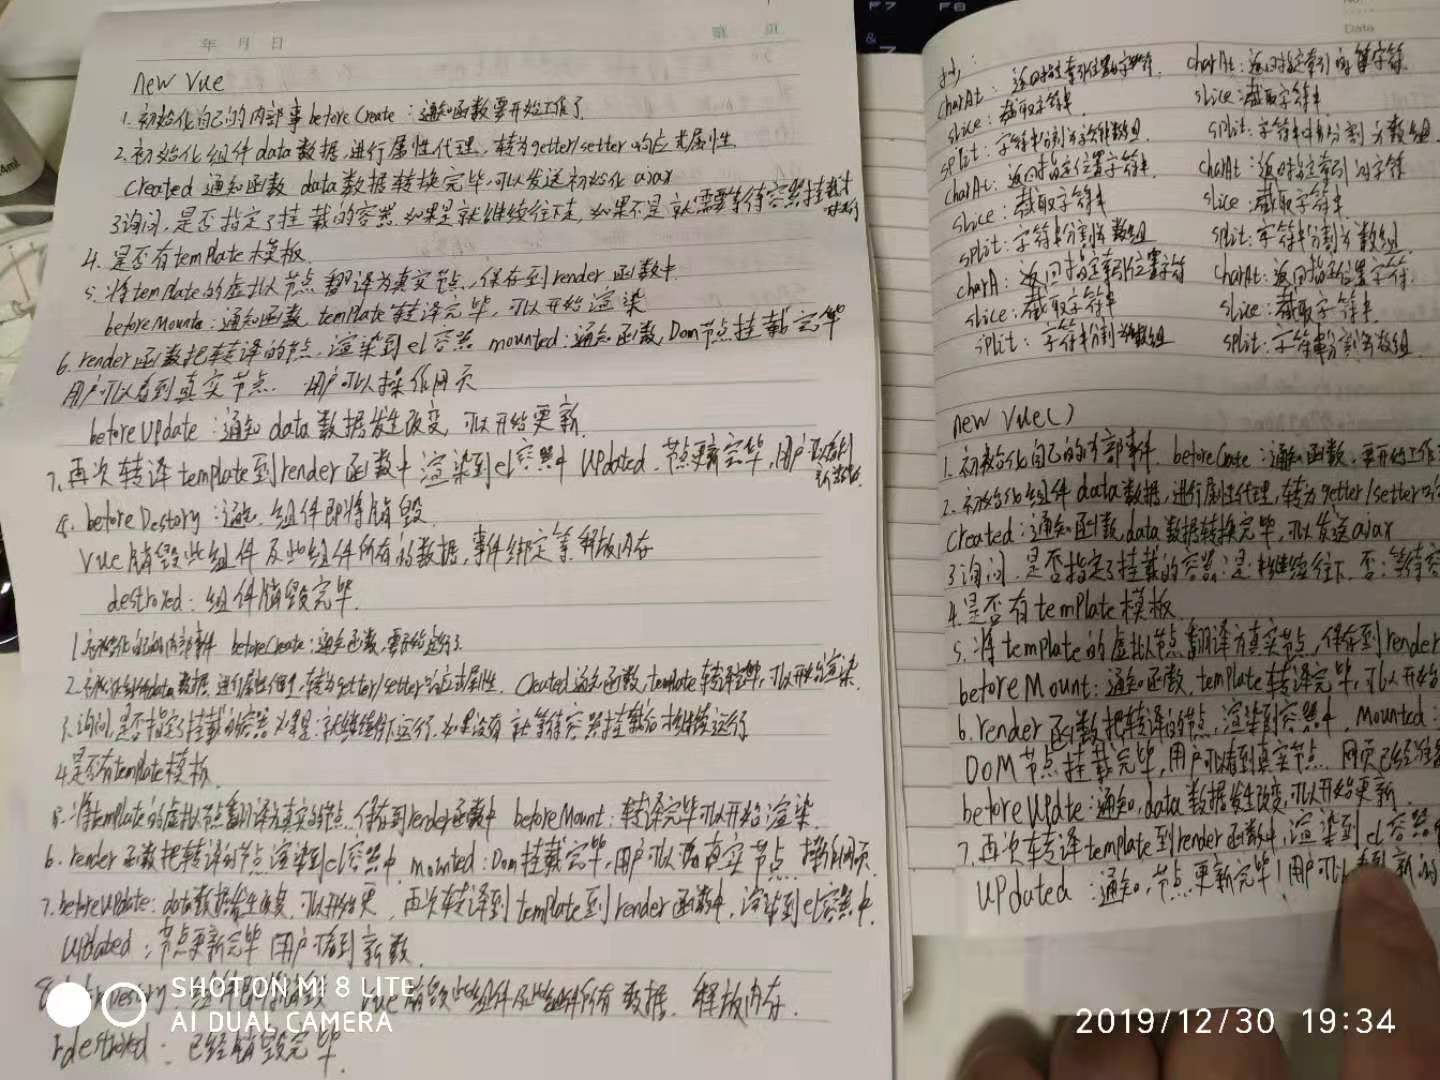 年 月 日
第 页
new Vue
1. 初始化自己的内部事 beforeCreate：通知函数要开始工作了
2. 初始化组件data数据,进行属性代理,转为getter/setter的应式属性
Created 通知函数 data数据转换完毕,可以发送初始化ajax
3询问,是否指定了挂载的容器.如果是就继续往下走,如果不是就需要等待容器挂载
4. 是否有template模板
5. 将template的虚拟节点翻译为真实节点,保存到render函数中.
beforeMounte：通知函数 template转译完毕,可以开始渲染
6. render函数把转译的节点,渲染到el容器 mounted：通知函数,Dom节点挂载完毕
用户可以看到真实节点. 用户可以操作网页
beforeUpdate：通知data数据发生改变,可以开始更新.
7. 再次转译template到render函数中渲染到el容器中 Updated.节点更新完毕,用户
8. beforeDestory：通知.组件即将销毁.
Vue销毁此组件及此组件所有的数据,事件绑定等.释放内存
destroyed：组件销毁完毕.
1. 初始化自己的内部事件 beforeCreate：通知函数,要开始
2. 初始化组件data数据,进行属性代理,转为getter/setter响应式属性. Created通知函数,template转译完毕,可以开始渲染.
3. 询问,是否指定了挂载的容器 如果是：就继续往下运行.如果没有 就等待容器挂载后才继续运行
4.是否有template模板
5. 将template的虚拟节点翻译为真实的节点.保存到render函数中 beforeMount：转译完毕可以开始渲染.
6. render函数把转译的节点渲染到el容器中. mounted：Dom挂载完毕,用户可以 真实节点. 网页
7. beforeUpdate：data数据发生改变.可以开始更. 再次转译到template到render函数中,渲染到el容器中.
Updated：节点更新完毕 用户可看到新数.
8. 此组件及此组件所有数据. 释放内存.
destroyed：已经销毁完毕.
SHOT ON MI 8 LITE
AI DUAL CAMERA
F7 F8
&
7
No.
Data
charAt：返回指定索引位置字符.
slice：截取字符串
split：字符串分割为字符数组.
charAt：返回指定位置字符串.
slice：截取字符串
split：字符串分割为数组
charA：返回指定索引位置字符
slice：截取字符串
split：字符串分割为数组
charAt：返回指定索引的字符.
slice：截取字符串
split：字符串分割为数组.
charAt：返回指定索引的字符
slice：截取字符串.
split：字符串分割为数组.
charAt：返回指定位置字符.
slice：截取字符串.
split：字符串分割为数组.
new Vue()
1. 初始化自己的内部事件. beforeCreate：通知函数,要开始工作
2. 初始化组件data数据,进行属性代理,转为getter/setter
Created：通知函数,data数据转换完毕,可以发送ajax
3询问.是否指定了挂载的容器：是：继续往下.否：等待容
4.是否有template模板
5. 将template的虚拟节点翻译为真实节点,保存到render
beforeMount：通知函数,template转译完毕,可以开始
6. render函数把转译的节点,渲染到容器中. Mounted：
DOM节点挂载完毕,用户可以看到真实节点.网页已经
beforeUpdate：通知,data数据发生改变,可以开始更新.
7.再次转译template到render函数中,渲染到el容器
UPdated：通知,节点更新完毕!用户可以看到新的
2019/12/30 19:34